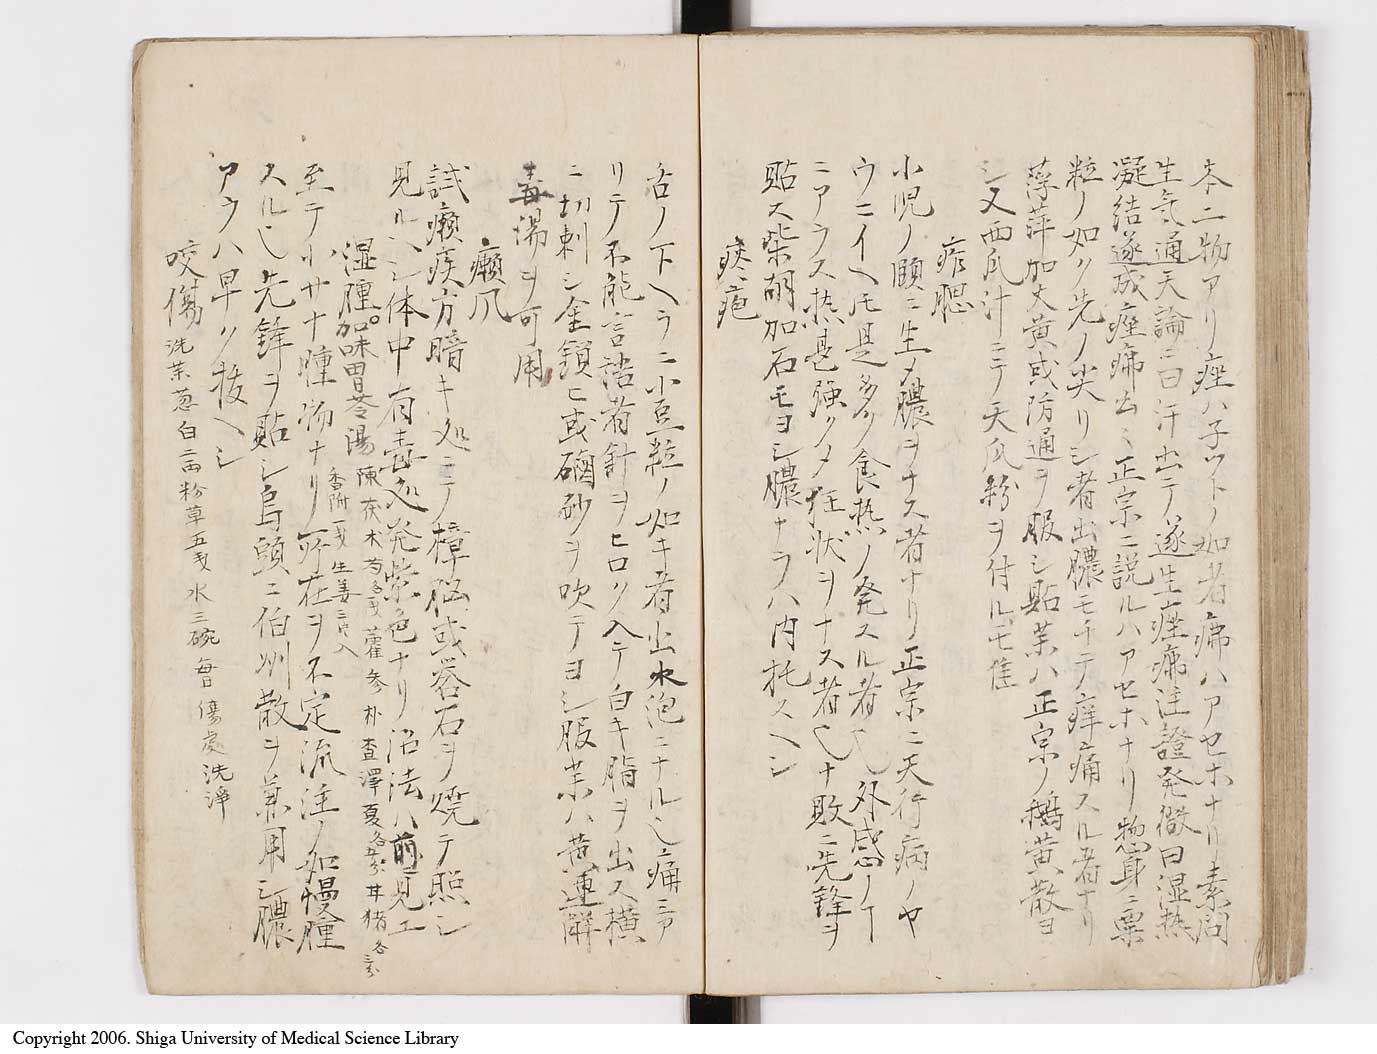 本二物アリ痤ハ子ツトノ如者疿ハアセホナリ素問
生気通天論ニ曰汗出テ遂生痤疿注證発微曰湿热
凝結遂成痤疿出ミ正宗ニ説ルハアセホナリ惣身ニ粟
粒ノ如ク先ノ尖リシ者出膿モチテ痒痛スル者ナリ
萍加大黄或防通ヲ服シ貼茉ハ正宗ノ鵝黄散ヨ
シ又西瓜汁ニテ天瓜粉ヲ付ルモ佳
痄腮
小児ノ頤ニ生メ膿ヲナス者ナリ正宗ニ天行病ノヤ
ウニイヘ𪜈是多ク食热ノ発スル者也外感ノ
ニアラス热甚強クメ狂状ヲナス者也十敗ニ先鋒ヲ
貼ス柴胡加石モヨシ膿ナラハ内托スヘシ
痰疱
舌ノ下ヘラニ小豆粒ノ如キ者出水泡ニナル也痛ミア
リテ不能言語者針ヲヒロク入テ白キ脂ヲ出ス横
ニ切刺シ金鎖ヒ或硇砂ヲ吹テヨシ服茉ハ黄連解
毒湯ヲ可用
癩爪
試癩疾方暗キ処ニテ樟脳或岩石ヲ焼テ照シ
見ルヘシ体中有毒処発紫色ナリ治法ハ前見工
湿腫加味胃苓湯 陳茯木芍各戈藿参朴査澤夏各五分甘猪各三分
香附一戈生姜三片入
至テ小サナ腫物ナリ所在ヲ不定流注ノ如慢腫
スル也先鋒ヲ貼シ烏頭ニ伯州散ヲ兼用シ膿
アラハ早ク抜ヘシ
咬傷 洗茉葱白二両粉草五戈水三碗每日傷處洗淨
Copyright 2006. Shiga University of Medical Science Library